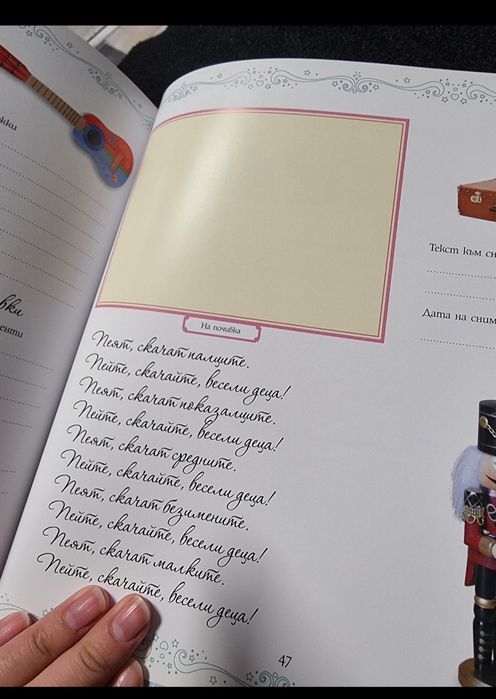 На почивка
Пеят, скачат палците.
Пейте, скачайте, весели деца!
Пеят, скачат показалците.
Пейте, скачайте, весели деца!
Пеят, скачат средните.
Пейте, скачайте, весели деца!
Пеят, скачат безимените.
Пейте, скачайте, весели деца!
Пеят, скачат малките.
Пейте, скачайте, весели деца!
47
Текст към
Дата на